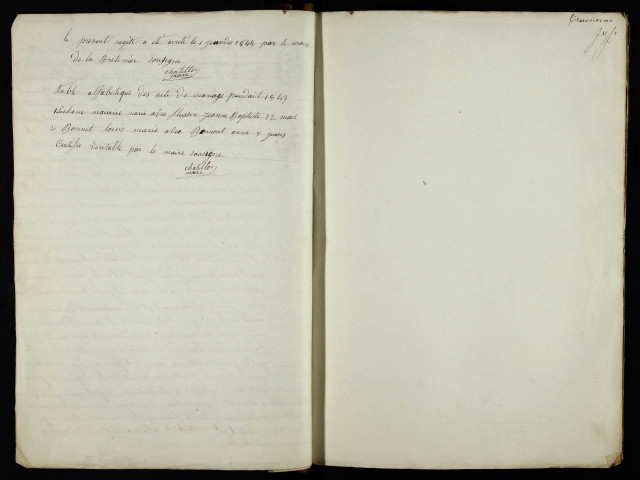 le present registre a été areté le 1 janvier 1844 par le maire
de la Bretenier sousigné
chatillon
maire
table alfabetique des acte de mariage pendant 1843
maurice marie avec jeanne Baptiste 12 mars
Bonnet louis marie avec Bonnout anne 4 juin
Certifie veritable par le maire sousigne
chatillon
maire